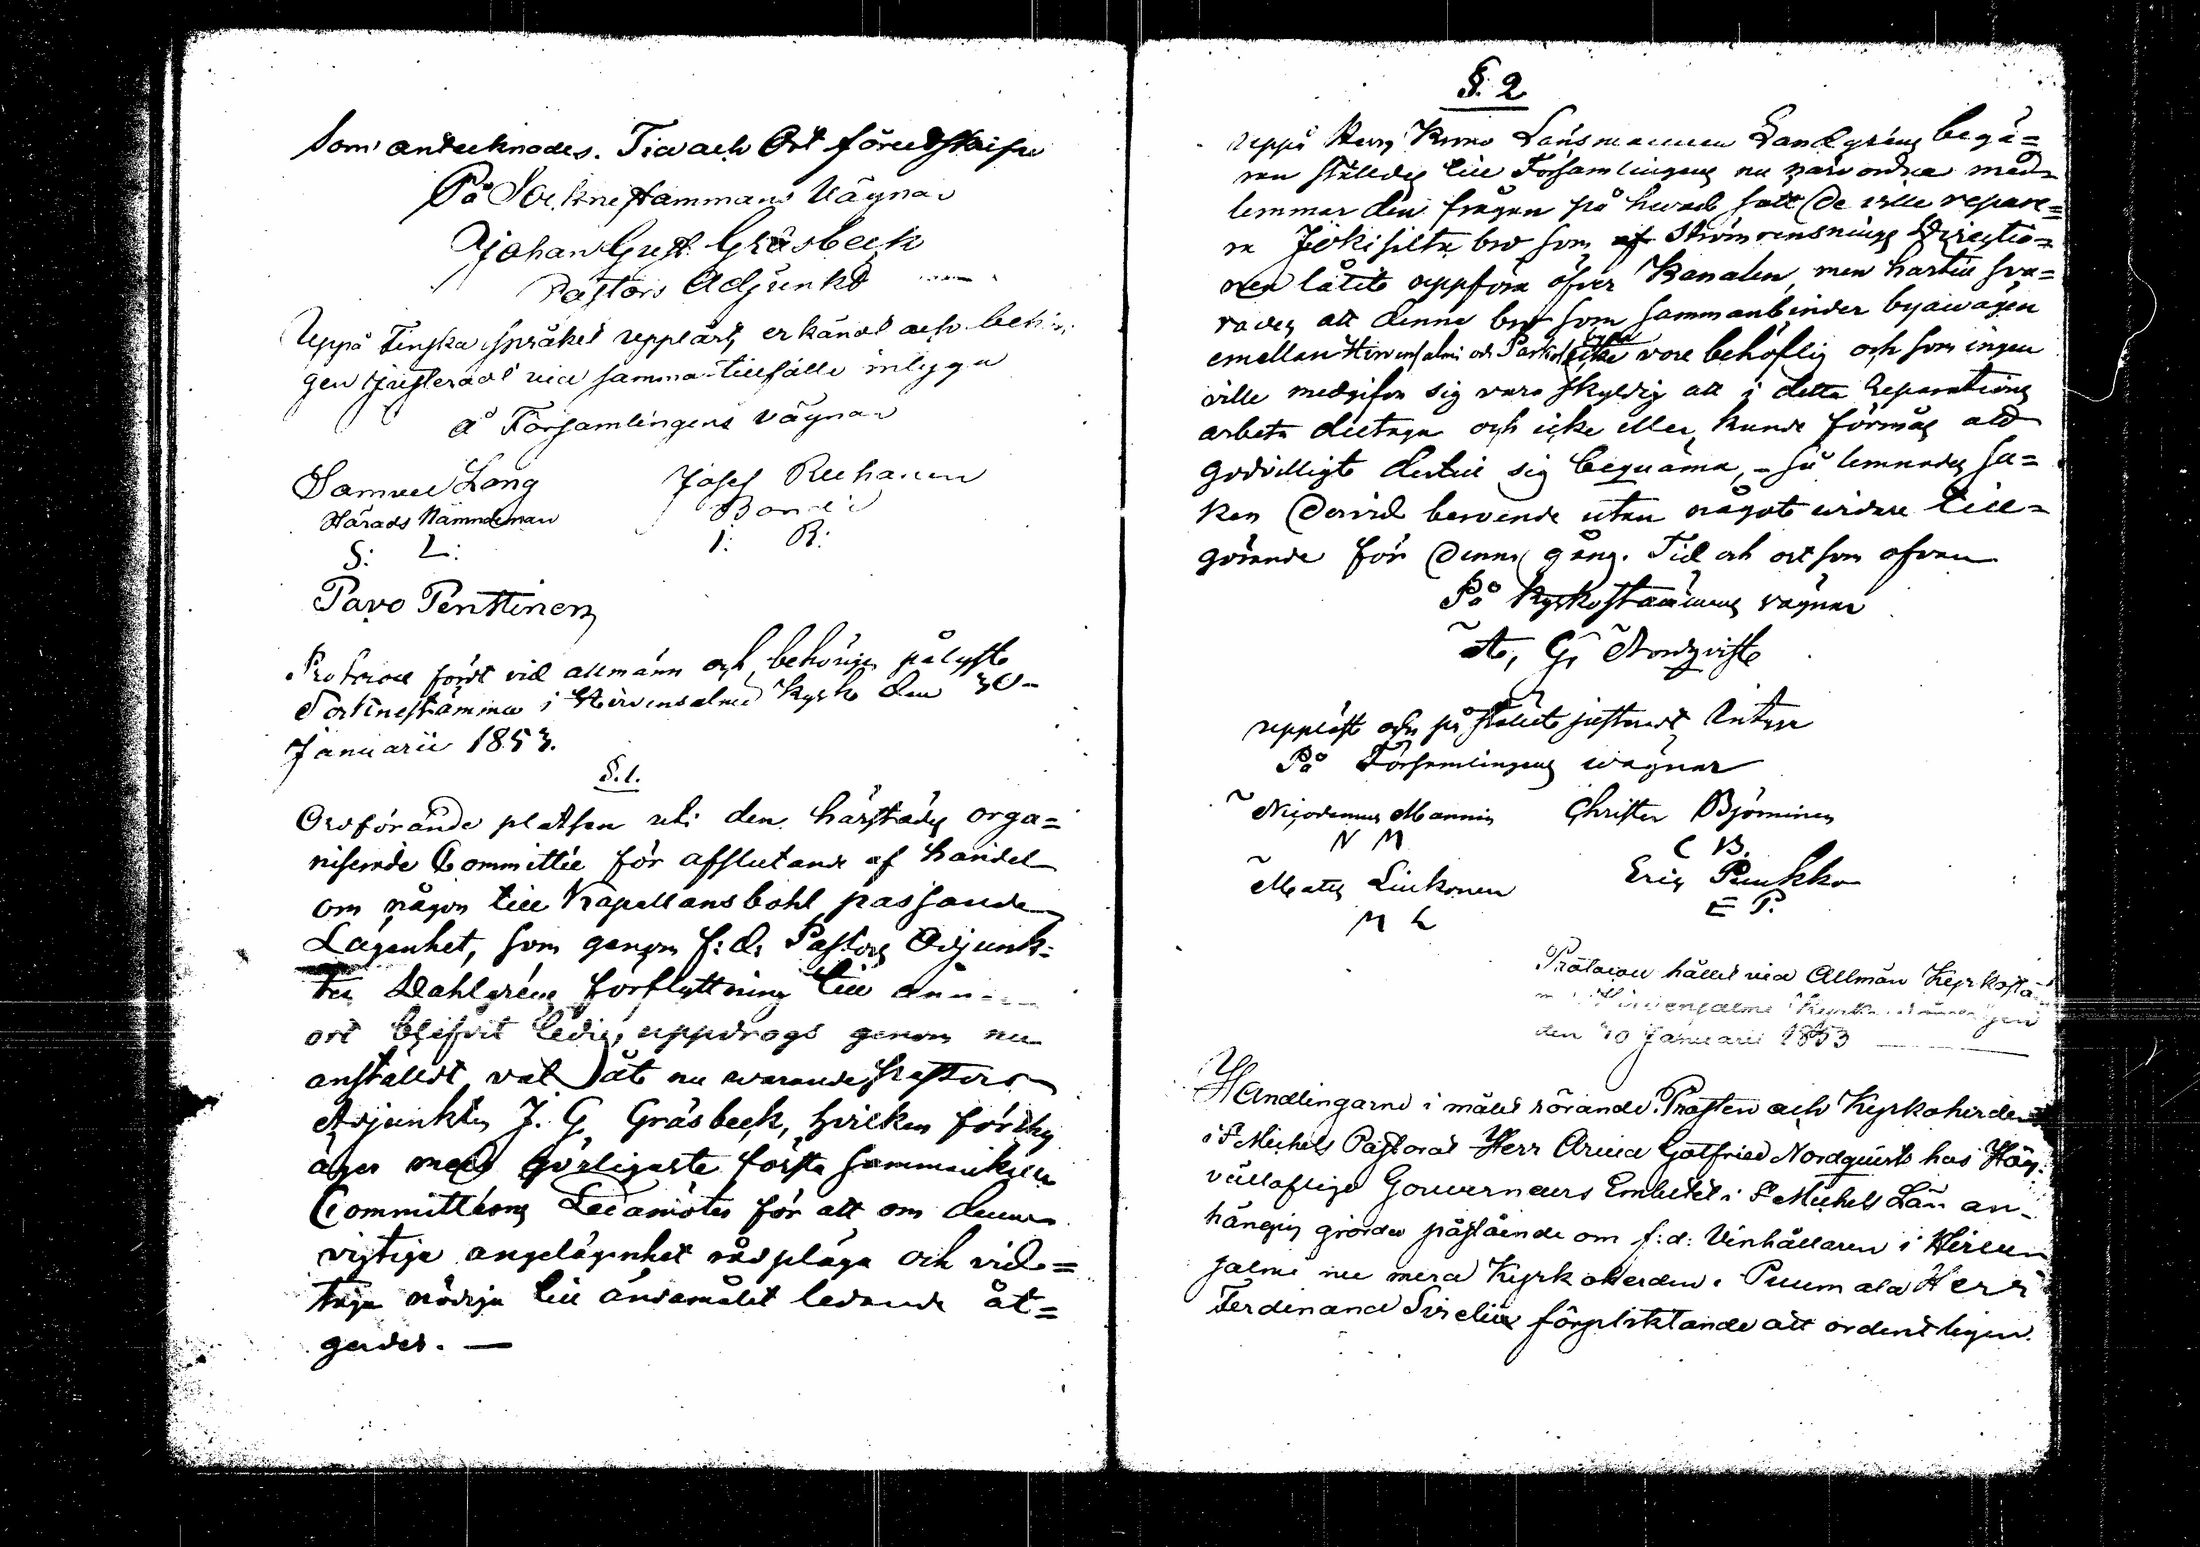 Som antecknades. Tid och Ort föreskrifne
På Sockne stammans Vägnar
Johan Gust. Gråsbeck
Pastors Adjunkt
Uppå Finska språket uppläst, erkändt och behöri-
gen justeradt vid samma tillfälle intyga
å Församlingens vägnar
Samuel Lång Josef Reehanen
Härads Nämndeman Bonde
S: L: I: R:
Pavo Penttinen
Protocoll fördt vid allmänn och behörigen pålyste
Socknestämma i Hirvensalmi Kyrka den 30
Januarii 1853.
§.1.
Ordförande platsen uti den härstädes orga=
niserade Committée för afslutande af handel
om någon till Kapellansbohl passande
Lägenhet, som genom f:d: Pastors Adjunk=
ten Dahlgréns förflyttning till ann
ort blifvit ledig, uppdrogs genom nu
anställdt val åt nu warande Pastors
Adjunkten J. G. Gråsbeck, hvilken förthy
äger med görligaste första sammankalla
Committéens Ledamöter för att om denna
vigtiga angelägenhet rådpläga och vid=
taga nödiga till ändamålet ledande åt=
gerder. —
§. 2
Uppå Herr Krono Länsmannen Landgréns begä=
ran ställdes till Församlingens nu närvordne med=
lemmar den frågan på hvad sätt De ville repare=
ra Jokisilta bro som af Strömrensnings Directio=
nen låtit uppföra öfver Kanalen, men härtill sva=
rades att denna bro som sammanbinder byawägen
emellan Hirvensalmi och icke vore behöflig och som ingen
ville medgifva sig vara skyldig att i detta Reparations
arbete deltaga och icke eller kunde förmås att
godvilligt dertill sig beqväma, - så lemnades sa=
ken dervid beroende utan något vidare till=
görande för denna gång. Tid och ort som ofvan
På Kyrkostämmans vägnar
A. G. Nordqvist
Uppläst och på stället justeradt, intyga
På Församlingens wägnar
Nicodemus Mannin Christer Björninen
N M C B.
Mats Liukonen Eric Puukko
M L E P.
Protocoll hållet vid Allmän Kyrkostä
m Hirvensalmi Kyrka
den 30 Januarii 1853
Handlingarne i målet rörande Prosten och Kyrkoherden
i St Michels Pastorat Herr Arvid Gottfried Nordqvists hos Hög=
välloflige Gouverneurs Embetet i St Michels Län an=
hängig giorda påstående om f:d: Vinhållaren i Hirven
salmi nu mera Kyrkoherden i Puumala Herr
Ferdinand Sirelius förpliktande att ordentligen